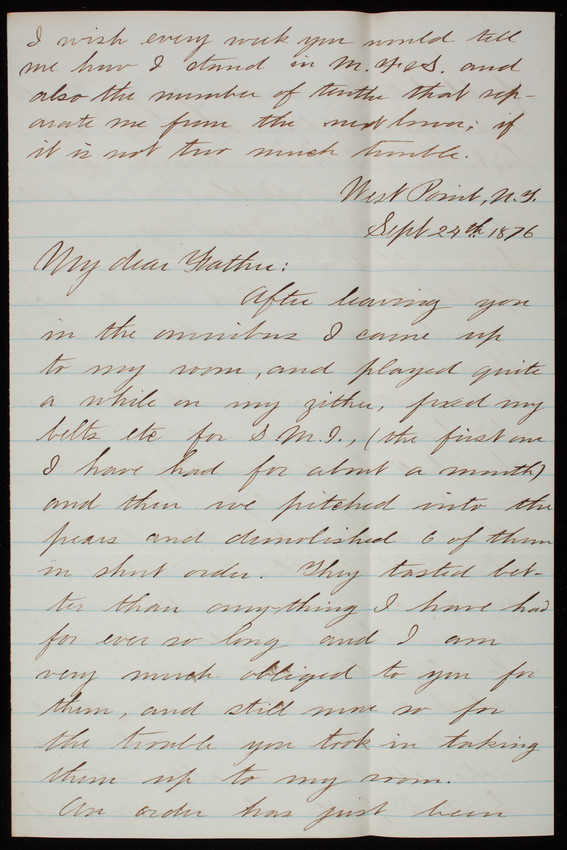 I wish every week you would tell
me how I stand in M. F & S. and
also the number of tenths that sep-
arate me from the next lower; if
it is not too much trouble.
West Point, N.Y.
Sept 24th 1876
My dear Father:
After leaving you
in the omnibus I came up
to my room, and played quite
a while on my zither, fixed my
belts etc for S M.I., (the first one
I have had for about a month)
and then we pitched into the
pears and demolished 6 of them
in short order. They tasted bet-
ter than anything I have had
for ever so long and I am
very much obliged to you for
them, and still more so for
the trouble you took in taking
them up to my room.
An order has just been